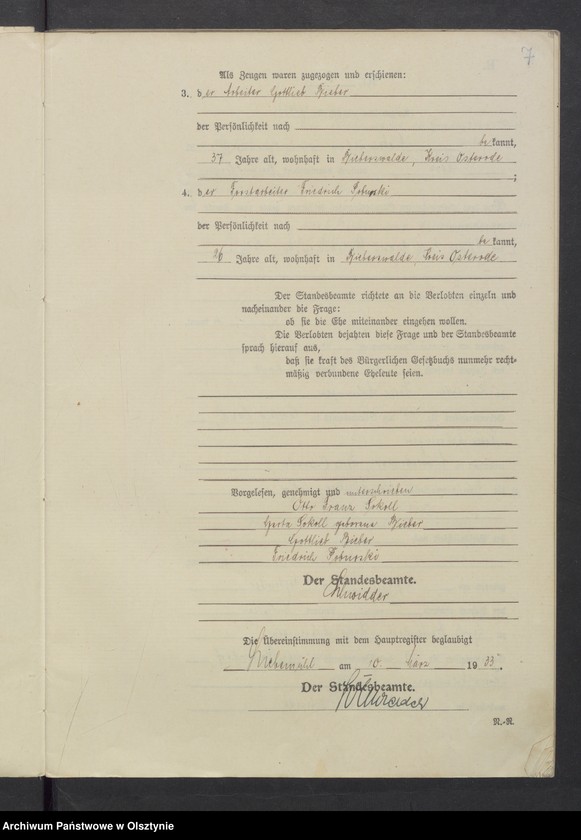 7
Als Zeugen waren zugezogen und erschienen:
3. der Arbeiter Gottlieb Bieber
der Persönlichkeit nach
bekannt,
37 Jahre alt, wohnhaft in Bieberswalde, Kreis Osterode
;
4. der Forstarbeiter Friedrich
der Persönlichkeit nach
bekannt,
26 Jahre alt, wohnhaft in Bieberswalde, Kreis Osterode
Der Standesbeamte richtete an die Verlobten einzeln und
nacheinander die Frage:
ob sie die Ehe miteinander eingehen wollen.
Die Verlobten bejahten diese Frage und der Standesbeamte
sprach hierauf aus,
daß sie kraft des Bürgerlichen Gesetzbuchs nunmehr recht-
mäßig verbundene Eheleute seien.
Vorgelesen, genehmigt und unterschrieben
Otto Franz Sokoll
Sokoll geborene Bieber
Gottlieb Bieber
Friedrich
Der Standesbeamte.
Die Übereinstimmung mit dem Hauptregister beglaubigt
Liebemühl am 10. März 1933.
Der Standesbeamte.
N.-R.
Archiwum Państwowe w Olsztynie